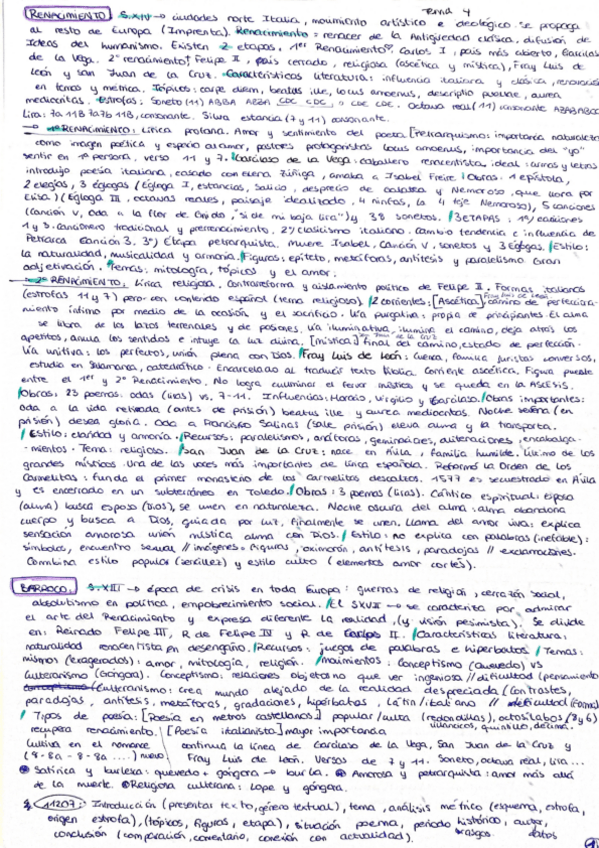 Tema 4
RENACIMIENTO S.XIV → ciudades norte Italia, movimiento artístico e ideológico. Se propaga
al resto de Europa (Imprenta). Renacimiento = renacer de la Antigüedad clásica, difusión de
Ideas del humanismo. Existen 2 etapas, 1er Renacimiento, Carlos I, país más abierto, Garcilaso
de la Vega. 2º renacimiento, Felipe II, país cerrado, religiosa (ascética y mística), Fray Luis de
León y San Juan de la Cruz. Características literatura: influencia italiana y clásica, renovación
en temas y métrica. Tópicos: carpe diem, beatus ille, locus amoenus, descriptio puellae, aurea
mediocritas. Estrofas: Soneto (11) ABBA ABBA CDC CDC, o CDE CDE. Octava real (11) consonante ABABABCC
Lira: 7a 11B 7a 7b 11B, consonante. Silva estancia (7 y 11) consonante.
→ 1º RENACIMIENTO: Lírica profana. Amor y sentimiento del poeta [Petrarquismo: importancia naturaleza
como imagen poética y espacio al amor, pastores protagonistas locus amoenus, importancia del "yo"
sentir en 1ª persona, verso 11 y 7. / Garcilaso de la Vega: caballero renacentista, ideal: armas y letras
introdujo poesía italiana, casado con Elena Zúñiga, amaba a Isabel Freire / Obras: 1 epístola,
2 elegías, 3 églogas (Égloga I, estancias, Salicio, desprecio de Galatea y Nemoroso, que llora por
Elisa) (Égloga III, octavas reales, paisaje idealizado, 4 ninfas, la 4 teje Nemoroso), 5 canciones
(canción V, oda a la flor de Gnido, "si de mi baja lira") y 38 sonetos. / 3 ETAPAS: 1º) canciones
1 y 3. cancionero tradicional y prerrenacimiento. 2º) clasicismo italiano. cambio tendencia e influencia de
Petrarca canción 3. 3º) Etapa petrarquista, muere Isabel, canción V, sonetos y 3 églogas. / Estilo:
la naturalidad, musicalidad y armonía. / Figuras: epíteto, metáforas, antítesis y paralelismo. Gran
adjetivación. / Temas: mitología, tópicos y el amor.
→ 2º RENACIMIENTO: Lírica religiosa, contrarreforma y aislamiento político de Felipe II. Formas italianas
(estrofas 11 y 7) pero con contenido español (tema religioso). 2 corrientes: [Ascética] Fray Luis de León camino de perfecciona-
miento íntimo por medio de la ocasión y el sacrificio. Vía purgativa: propia de principiantes. El alma
se libra de los lazos terrenales y de pasiones. Vía iluminativa, ilumina el camino, deja atrás los
apetitos, anula los sentidos e intuye la luz divina, [mística] San Juan de la Cruz final de camino, estado de perfección.
Vía unitiva: los perfectos, unión plena con Dios. / Fray Luis de León: Cuenca, familia juristas conversos,
estudia en Salamanca, catedrático. Encarcelado al traducir texto bíblico. Corriente ascética. Figura puente
entre el 1er y 2º Renacimiento. No logra culminar el fervor místico y se queda en la Ascesis.
/ Obras: 23 poemas: odas (liras) vs. 7-11. Influencias: Horacio, Virgilio y Garcilaso. / Obras importantes:
oda a la vida retirada (antes de prisión) beatus ille y aurea mediocritas. Noche serena (en
prisión) desea gloria. Oda a Francisco Salinas (sale prisión) eleva alma y la transporta.
/ Estilo: claridad y armonía. / Recursos: paralelismos, anáforas, geminaciones, aliteraciones, encabalga-
-mientos - Tema: religioso. / San Juan de la Cruz: nace en Ávila, familia humilde. Último de los
grandes místicos. Una de las voces más importantes de lírica española. Reformó la Orden de los
Carmelitas: funda el primer monasterio de los Carmelitas descalzos. 1577 es secuestrado en Ávila
y es encerrado en un subterráneo en Toledo. / Obras: 3 poemas (liras). Cántico espiritual: esposa
(alma) busca esposo (Dios), se unen en naturaleza. Noche oscura del alma: alma abandona
cuerpo y busca a Dios, guiada por luz, finalmente se unen. Llama del amor viva: explica
sensación amorosa unión mística alma con Dios. / Estilo: no explica con palabras (inefable):
símbolos, encuentro sexual // imágenes = figuras, oxímoron, antítesis, paradojas // exclamaciones.
Combina estilo popular (sencillez) y estilo culto (elementos amor cortés).
BARROCO: S.XIII → época de crisis en toda Europa: guerras de religión, cerrazón social,
absolutismo en política, empobrecimiento social. / EL SXVII → se caracteriza por admirar
el arte del Renacimiento y expresa diferente la realidad, (y visión pesimista). Se divide
en: Reinado Felipe III, R de Felipe IV y R de Carlos II. / Características literatura:
naturalidad renacentista por desengaño. / Recursos: juegos de palabras e hiperbatos / Temas:
mismos (exagerados): amor, mitología, religión. / movimientos: conceptismo (Quevedo) vs
Culteranismo (Góngora). Conceptismo: relaciones objetos no que ver ingeniosa // dificultad (pensamiento
Culteranismo: crea mundo alejado de la realidad despreciada (contrastes,
paradojas, antítesis, metáforas, gradaciones, hipérbatos, latín/italiano // dificultad (forma)
/ Tipos de poesía: [Poesía en metros castellanos] popular/culta (redondillas), octosílabos (8 y 6)
villancicos, quintilla, décima.
recupera renacimiento. [Poesía italianista] mayor importancia
Cultiva en el romance continua la línea de Garcilaso de la Vega, San Juan de la Cruz y
(8-8a-8-8a ....) nuevo Fray Luis de León. Versos de 7 y 11. Soneto, octava real, lira...
Satírica y burlesca: quevedo + góngora → burla. Amorosa y petrarquista: amor más allá
de la muerte. Religiosa culterana: Lope y góngora.
11207: Introducción (presentar texto, género textual), tema, análisis métrico (esquema, estrofa,
origen estrofa), (tópicos, figuras, etapa), situación poema, periodo histórico, autor,
rasgos datos
conclusión (comparación, comentario, conexión con actualidad).